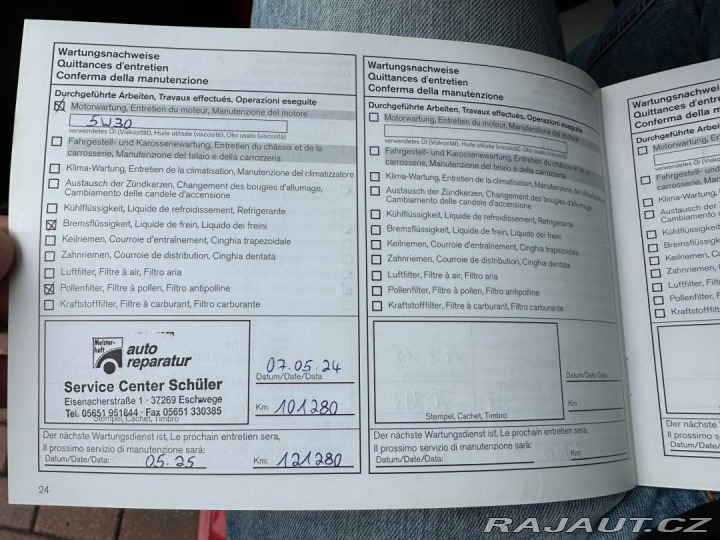 Wartungsnachweise
Quittances d'entretien
Conferma della manutenzione
Durchgeführte Arbeiten, Travaux effectués, Operazioni eseguite
Motorwartung, Entretien du moteur, Manutenzione del motore
5W30
verwendetes Öl (Viskosität), Huile utilisée (viscosité), Olio usato (viscosità)
Fahrgestell- und Karosseriewartung, Entretien du châssis et de la
carrosserie, Manutenzione del telaio e della carrozzeria
Klima-Wartung, Entretien de la climatisation, Manutenzione del climatizzatore
Austausch der Zündkerzen, Changement des bougies d'allumage,
Cambiamento delle candele d'accensione
Kühlflüssigkeit, Liquide de refroidissement, Refrigerante
Bremsflüssigkeit, Liquide de frein, Liquido dei freini
Keilriemen, Courroie d'entraînement, Cinghia trapezoidale
Zahnriemen, Courroie de distribution, Cinghia dentata
Luftfilter, Filtre à air, Filtro aria
Pollenfilter, Filtre à pollen, Filtro antipolline
Kraftstofffilter, Filtre à carburant, Filtro carburante
Meister-
haft
auto
reparatur
Service Center Schüler
Eisenacherstraße 1 · 37269 Eschwege
Tel. 05651 951844 · Fax 05651 330385
Stempel, Cachet, Timbro
07.05.24
Datum/Date/Data
Km 101280
Der nächste Wartungsdienst ist, Le prochain entretien sera,
Il prossimo servizio di manutenzione sarà:
Datum/Date/Data: 05.25 Km: 121280
24
Wartungsnachweise
Quittances d'entretien
Conferma della manutenzione
Durchgeführte Arbeiten, Travaux effectués, Operazioni eseguite
Motorwartung, Entretien du moteur, Manutenzione del motore
verwendetes Öl (Viskosität), Huile utilisée (viscosité), Olio usato (viscosità)
Fahrgestell- und Karosseriewartung, Entretien du châssis et de la
carrosserie, Manutenzione del telaio e della carrozzeria
Klima-Wartung, Entretien de la climatisation, Manutenzione del climatizzatore
Austausch der Zündkerzen, Changement des bougies d'allumage,
Cambiamento delle candele d'accensione
Kühlflüssigkeit, Liquide de refroidissement, Refrigerante
Bremsflüssigkeit, Liquide de frein, Liquido dei freini
Keilriemen, Courroie d'entraînement, Cinghia trapezoidale
Zahnriemen, Courroie de distribution, Cinghia dentata
Luftfilter, Filtre à air, Filtro aria
Pollenfilter, Filtre à pollen, Filtro antipolline
Kraftstofffilter, Filtre à carburant, Filtro carburante
Stempel, Cachet, Timbro
Datum/Date/Data
Km
Der nächste Wartungsdienst ist, Le prochain entretien sera,
Il prossimo servizio di manutenzione sarà:
Datum/Date/Data: Km:
Wartungsnachwei
Quittances d'ent
Conferma della m
Durchgeführte Arbeiten
Motorwartung, E
verwendetes Öl (Visk
Fahrgestell- und
carrosserie, Man
Klima-Wartung,
Austausch der
Cambiamento
Kühlflüssigkeit
Bremsflüssig
Keilriemen, C
Zahnriemen,
Luftfilter, Filt
Pollenfilter, F
Kraftstofffilt
Der nächste Wartu
Il prossimo servizi
Datum/Date/Data:
RAJAUT.CZ